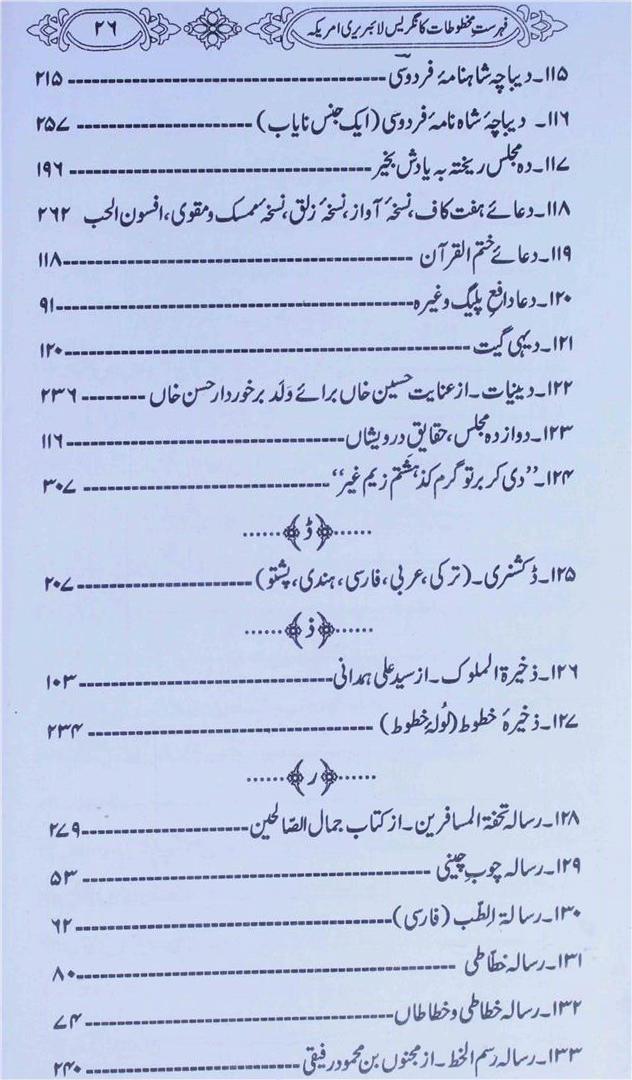 فہرستِ مخطوطات کانگریس لائبریری امریکہ ۲۶
۱۱۵۔ دیباچہ شاہنامۂ فردوسی ۲۱۵
۱۱۶۔ دیباچۂ شاہ نامۂ فردوسی (ایک جنس نایاب) ۲۵۷
۱۱۷۔ دہ مجلس ریختہ بہ یادش بخیر ۱۹۶
۱۱۸۔ دعائے ہفت کاف، نسخۂ آواز، نسخۂ زلق، نسخۂ ممسک ومقوی، افسون الحب ۲۶۲
۱۱۹۔ دعائے ختم القرآن ۱۱۸
۱۲۰۔ دعا دافع پلیگ وغیرہ ۹۱
۱۲۱۔ دیہی گیت ۱۲۰
۱۲۲۔ دینیات۔ از عنایت حسین خاں برائے وَلَد برخوردار حسن خاں ۲۳۶
۱۲۳۔ دوازدہ مجلس، حقایق درویشاں ۱۱۶
۱۲۴۔ ”دی کر بر تو گرم کذ ہشتم زیم غیر“ ۳۰۷
ڈ
۱۲۵۔ ڈکشنری۔ (ترکی، عربی، فارسی، ہندی، پشتو) ۲۰۷
ذ
۱۲۶۔ ذخیرۃ الملوک۔ از سید علی ہمدانی ۱۰۳
۱۲۷۔ ذخیرۂ خطوط (لُولۂ خطوط) ۲۳۴
ر
۱۲۸۔ رسالہ تحفۃ المسافرین۔ از کتاب جمال الصّالحین ۲۷۹
۱۲۹۔ رسالہ چوبِ چینی ۵۳
۱۳۰۔ رسالۃ الطّب (فارسی) ۶۲
۱۳۱۔ رسالہ خطّاطی ۸۰
۱۳۲۔ رسالہ خطاطی و خطاطاں ۷۴
۱۳۳۔ رسالہ رسم الخط۔ از مجنوں بن محمود رفیقی ۲۴۰